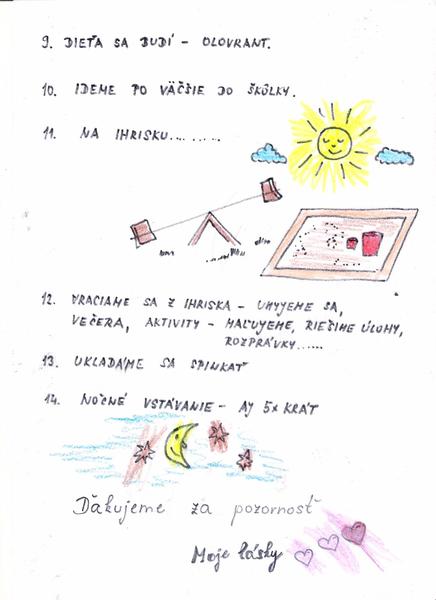 9. DIEŤA SA BUDÍ - OLOVRANT.
10. IDEME PO VÄČŠIE DO ŠKÔLKY.
11. NA IHRISKU.........
12. VRACIAME SA Z IHRISKA - UMYJEME SA,
VEČERA, AKTIVITY - MAĽUJEME, RIEŠIME ÚLOHY,
ROZPRÁVKY......
13. UKLADÁME SA SPINKAŤ
14. NOČNÉ VSTÁVANIE - AJ 5x KRÁT
Ďakujeme za pozornosť
Moje lásky